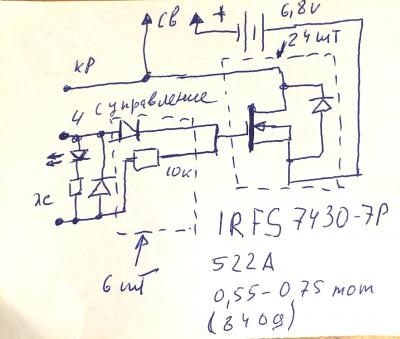 СВ + 6,8V
24 шт
КР
Ч управление
ЖС
10К
6 шт
IRFS 7430-7P
522А
0,55-0,75 mom
(240g)